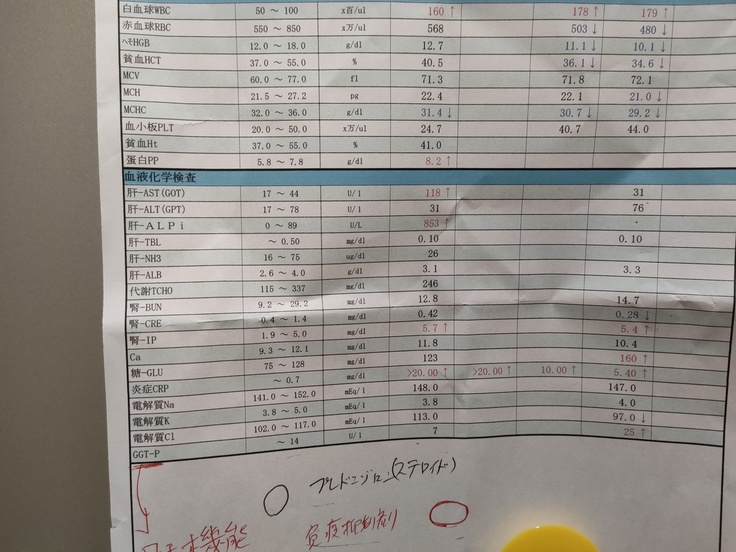 白血球WBC 50 ～ 100 x百/ul 160 ↑ 178 ↑ 179 ↑
赤血球RBC 550 ～ 850 x万/ul 568 503 ↓ 480 ↓
ﾍﾓHGB 12.0 ～ 18.0 g/dl 12.7 11.1 ↓ 10.1 ↓
貧血HCT 37.0 ～ 55.0 % 40.5 36.1 ↓ 34.6 ↓
MCV 60.0 ～ 77.0 fl 71.3 71.8 72.1
MCH 21.5 ～ 27.2 pg 22.4 22.1 21.0 ↓
MCHC 32.0 ～ 36.0 g/dl 31.4 ↓ 30.7 ↓ 29.2 ↓
血小板PLT 20.0 ～ 50.0 x万/ul 24.7 40.7 44.0
貧血Ht 37.0 ～ 55.0 % 41.0
蛋白PP 5.8 ～ 7.8 g/dl 8.2 ↑
血液化学検査
肝-AST(GOT) 17 ～ 44 U/l 118 ↑ 31
肝-ALT(GPT) 17 ～ 78 U/l 31 76
肝-ＡＬＰｉ 0 ～ 89 U/L 853 ↑
肝-TBL ～ 0.50 mg/dl 0.10 0.10
肝-NH3 16 ～ 75 ug/dl 26
肝-ALB 2.6 ～ 4.0 g/dl 3.1 3.3
代謝TCHO 115 ～ 337 mg/dl 246
腎-BUN 9.2 ～ 29.2 mg/dl 12.8 14.7
腎-CRE 0.4 ～ 1.4 mg/dl 0.42 0.28 ↓
腎-IP 1.9 ～ 5.0 mg/dl 5.7 ↑ 5.4 ↑
Ca 9.3 ～ 12.1 mg/dl 11.8 10.4
糖-GLU 75 ～ 128 mg/dl 123 160 ↑
炎症CRP ～ 0.7 mg/dl >20.00 ↑ >20.00 ↑ 10.00 ↑ 5.40 ↑
電解質Na 141.0 ～ 152.0 mEq/l 148.0 147.0
電解質K 3.8 ～ 5.0 mEq/l 3.8 4.0
電解質Cl 102.0 ～ 117.0 mEq/l 113.0 97.0 ↓
GGT-P ～ 14 U/l 7 25 ↑
プレドニゾロン(ステロイド)
免疫抑制剤
機能